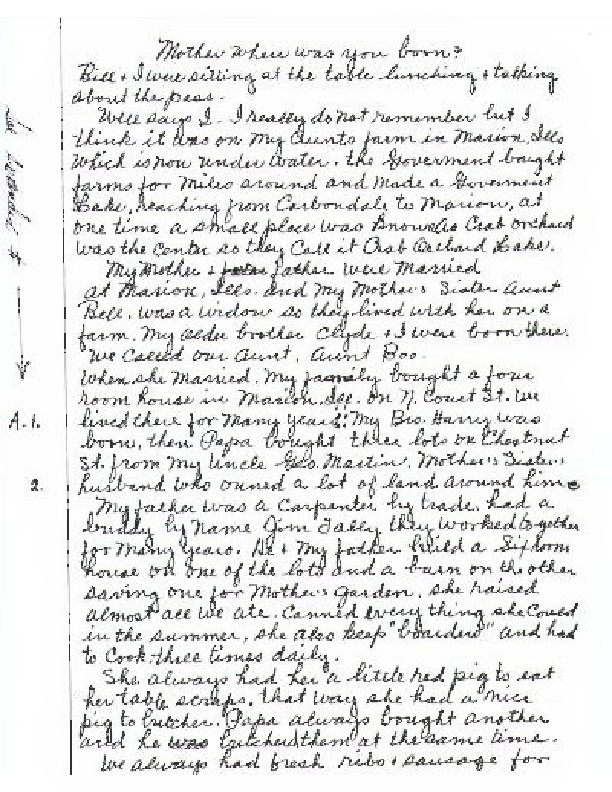 Mother where was you born?
Bill & I were sitting at the table lunching & talking
about the pass.
Well says I - I really do not remember but I
think it was on my aunts farm in Marion, Ills
which is now under water. the Goverment bought
farms for miles around and made a Goverment
Lake, reaching from Carbondale to Marion, at
one time a small place was Knowed as Crab Orchard
was the center so they call it Crab Orchard Lake.
My Mother & father were married
at Marion, Ills. and my Mother's Sister Aunt
Bell, was a widow so they lived with her on a
farm. My older brother Clyde & I were born there.
We called our Aunt, Aunt Boo.
When she married, my family bought a four
room house in Marion, Ill. on N. Court St. We
A.1. lived there for many years. My Bro. Harry was
born, then Papa bought three lots on Chestnut
St. from my Uncle Geo. Martin, Mother's Sister's
2. husband who owned a lot of land around him.
My father was a carpenter by trade, had a
buddy by name Jim they worked together
for many years. He & my father build a Six room
house on one of the lots and a barn on the other
saving one for Mother's Garden, she raised
almost all we ate. Canned every thing she could
in the summer, she also keep "boarders" and had
to cook three times daily.
She always had her a little red pig to eat
her table scraps. that way she had a nice
pig to butcher. Papa always bought another
and he was butchered them at the same time.
We always had fresh ribs & sausage for